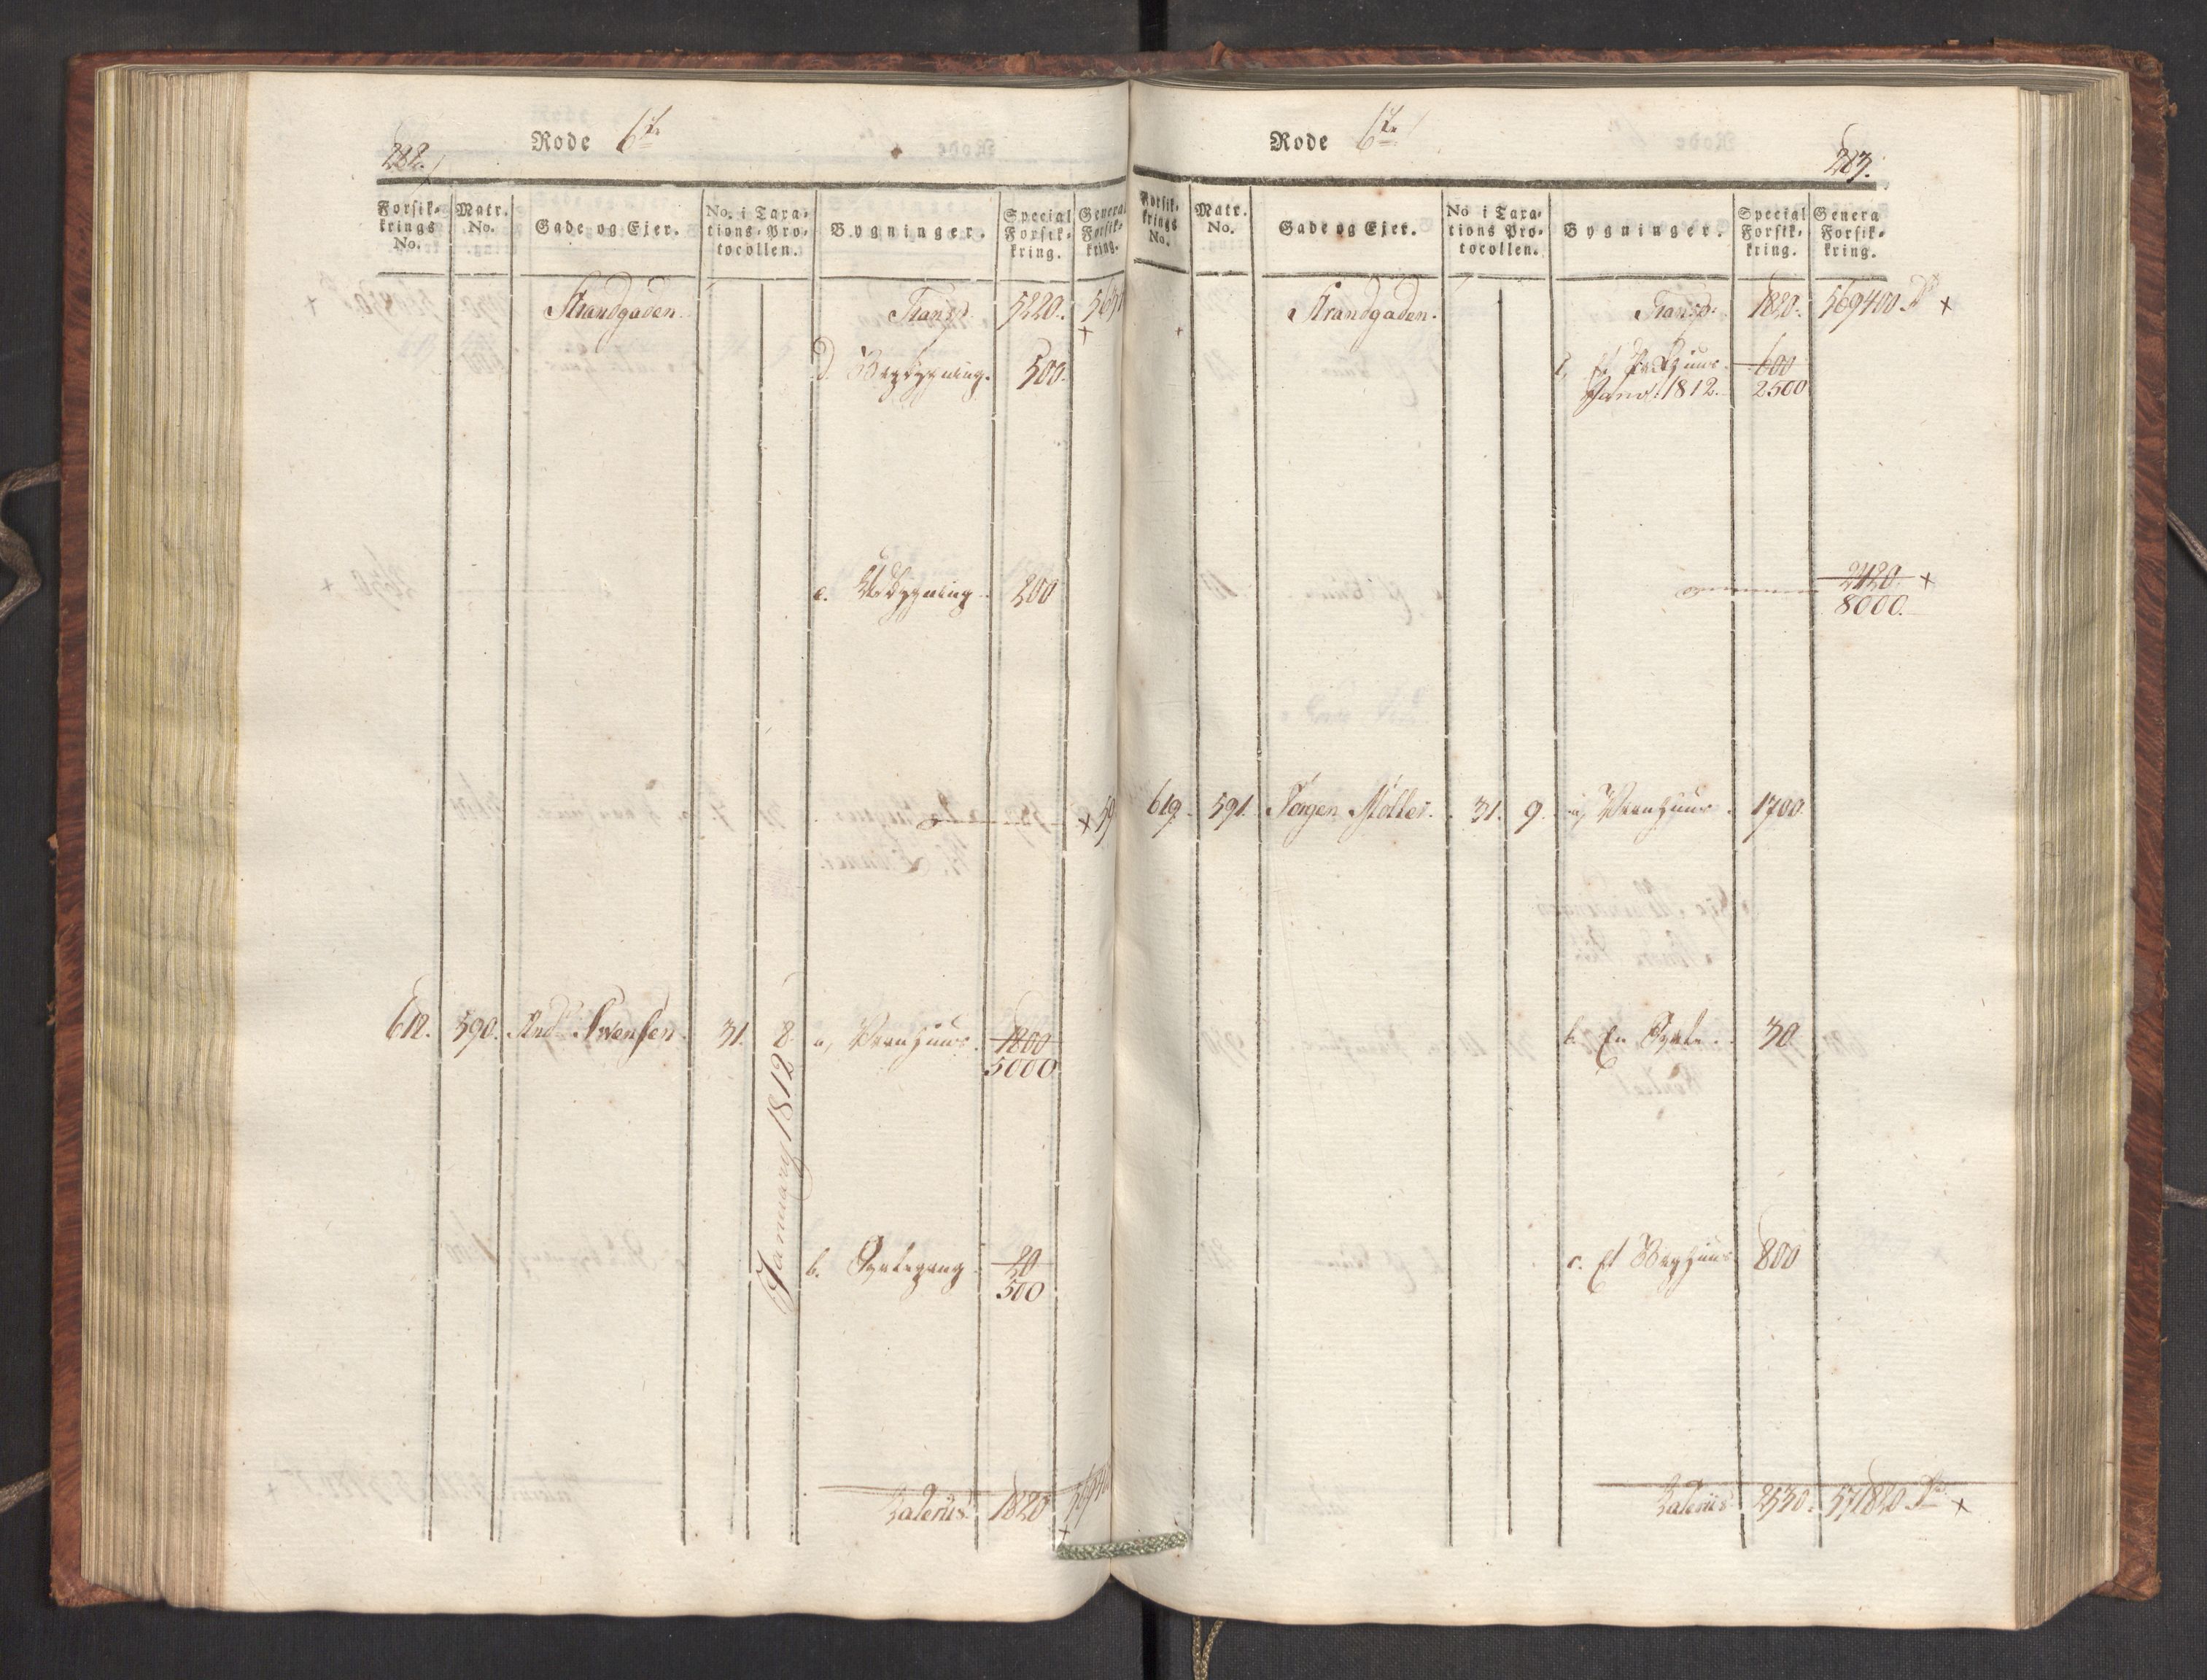 282.
Rode 6te
Forsik-
krings
No.
Matr.
No.
Gade og Ejer.
No. i Taxa-
tions-Pro-
tocollen.
Bygninger.
Special
Forsik-
kring.
Genera
Forsik-
kring.
Strandgaden. Transp. 5220.
d. Bagbygning. 500.
e. Udbygning 200
612. 590. And. Svensen. 31. 8. a, Vaanhuus. 1800
5000
January 1812
b. 20
500
Lateriis. 1820
Rode 6te
283.
Forsik-
krings
No.
Matr.
No.
Gade og Ejer.
No i Taxa-
tions Pro-
tocollen.
Bygninger.
Special
Forsik-
kring.
Genera
Forsik-
kring.
Strandgaden. Transp. 1820. 569400.
600
1812. 2500
2420.
8000.
619. 591. Jørgen Møller. 31. 9. a, Vaanhuus. 1700
b. En 30
c. Et Baghuus 800
Lateriis 2530. 571820